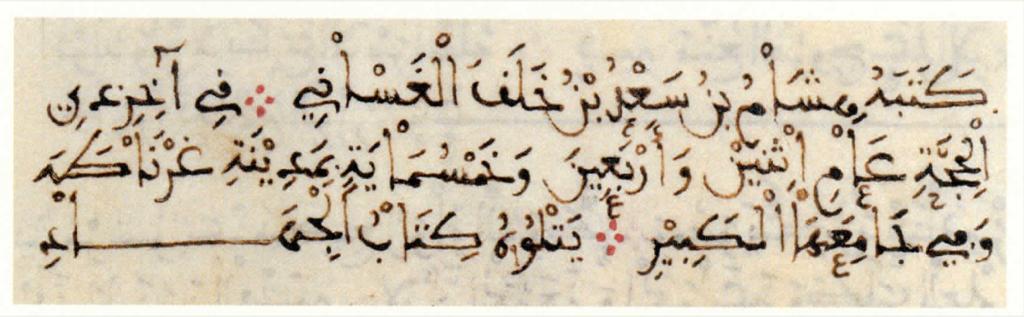 كتبه هشام بن سعيد بن خلف الغساني ۞ في آخر ذي
الحجة عام اثنين واربعين وخمسماية بمدينة غرناطة
وفي جامعها الكبير ۞ يتلوه كتاب الجهـــــــاد